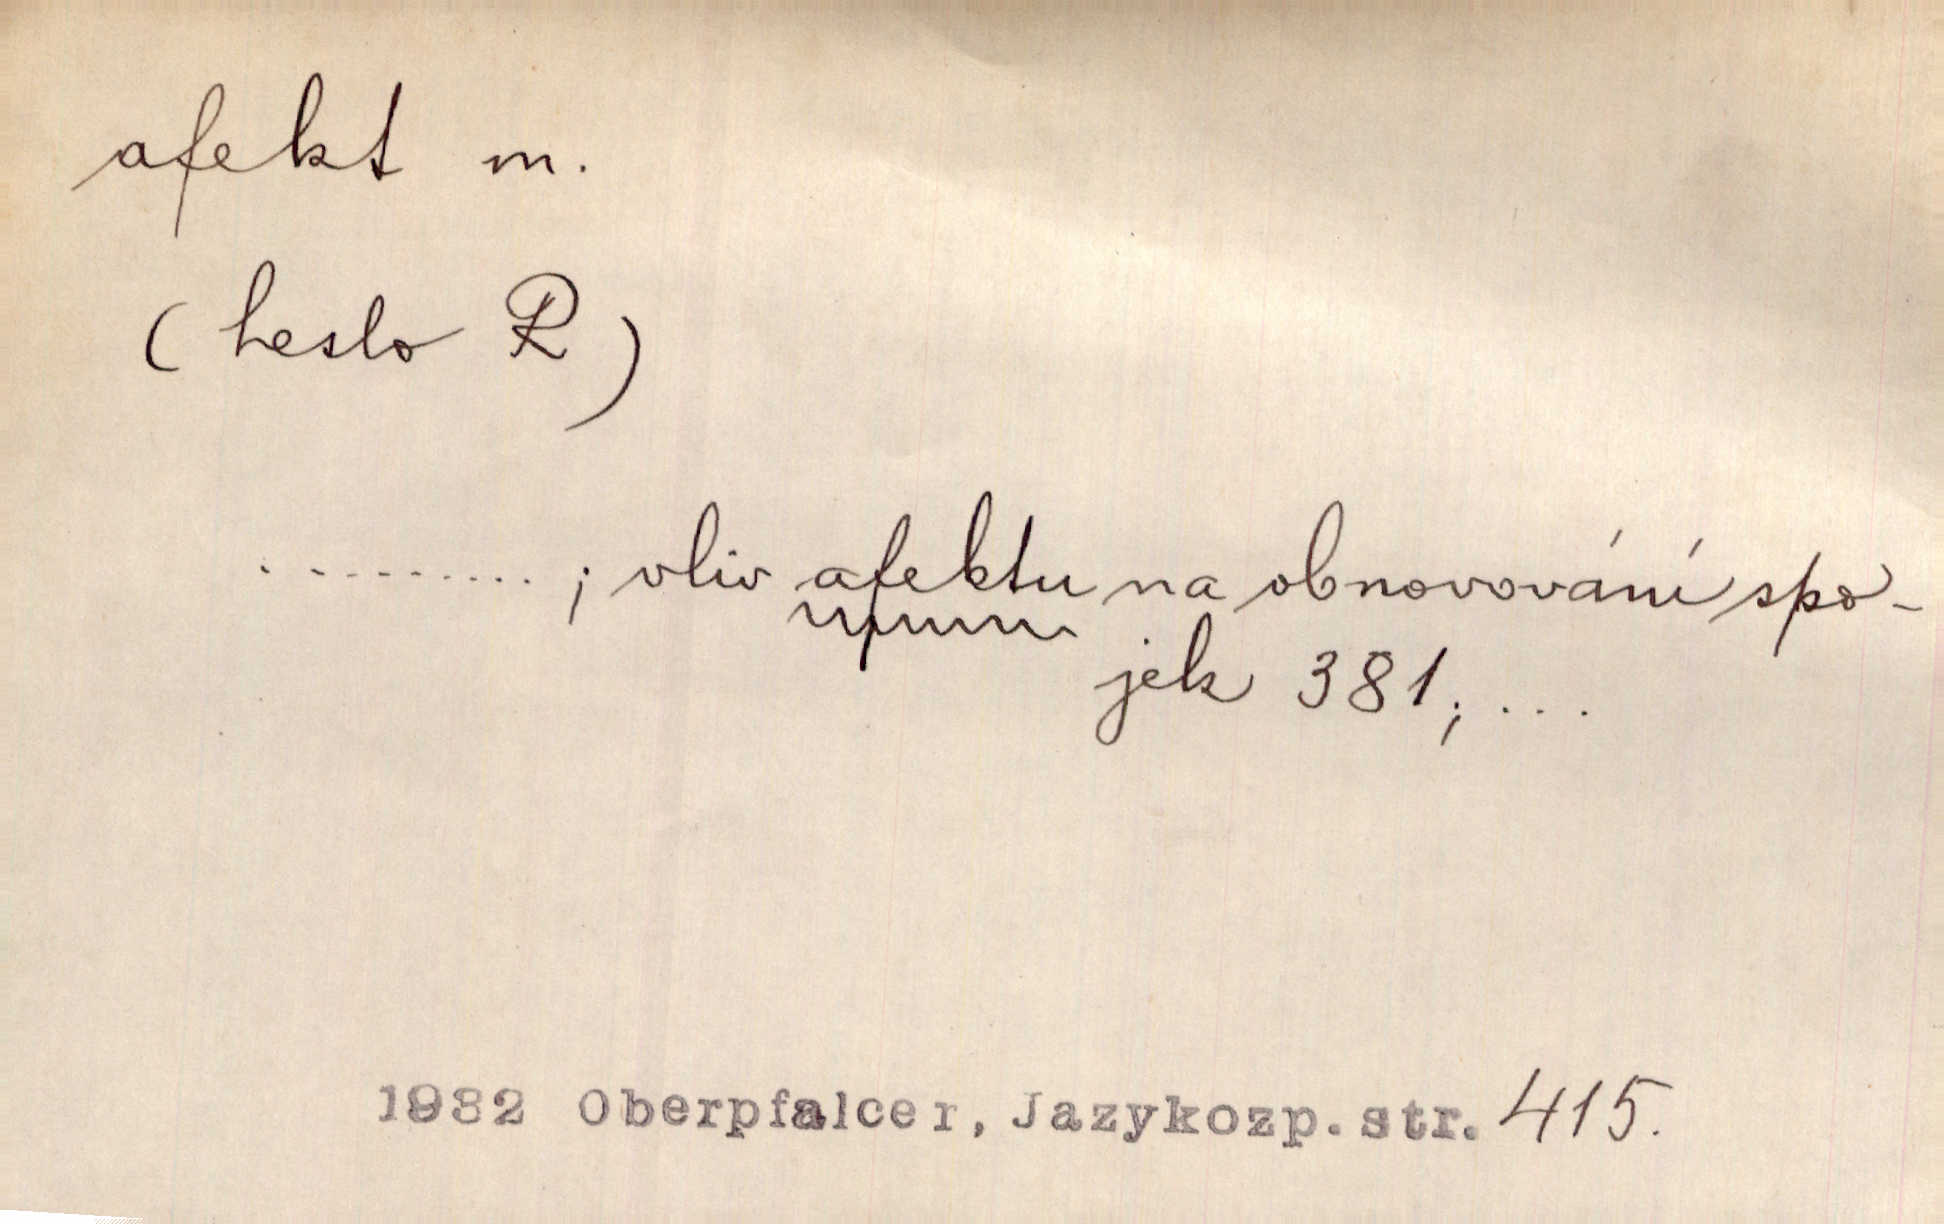 afekt m.
(heslo R)
..........; vliv afektu na obnovování spo-
jek 381; ...
1932 Oberpfalcer, Jazykozp. str. 415.